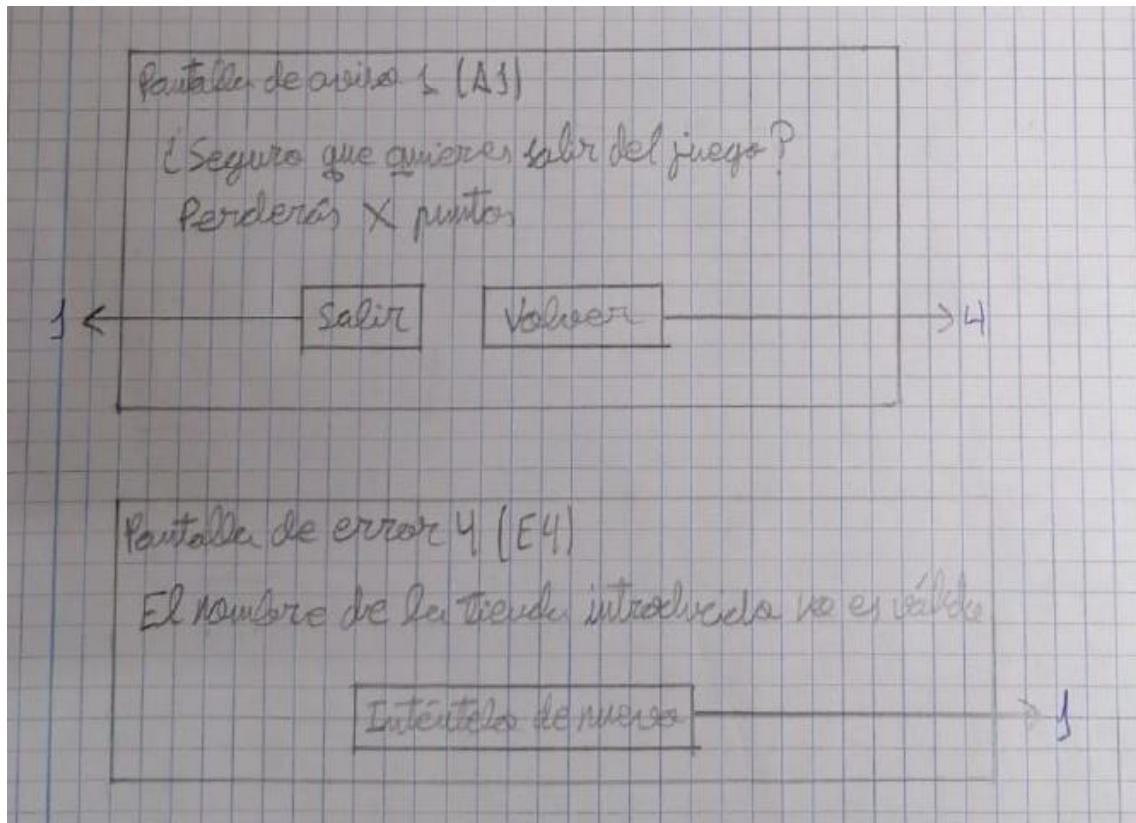 Pantalla de aviso 1 (A1)
¿Seguro que quieres salir del juego?
Perderás X puntos
1 Salir Volver 4
Pantalla de error 4 (E4)
El nombre de la tienda introducida no es válido
Inténtelo de nuevo 1